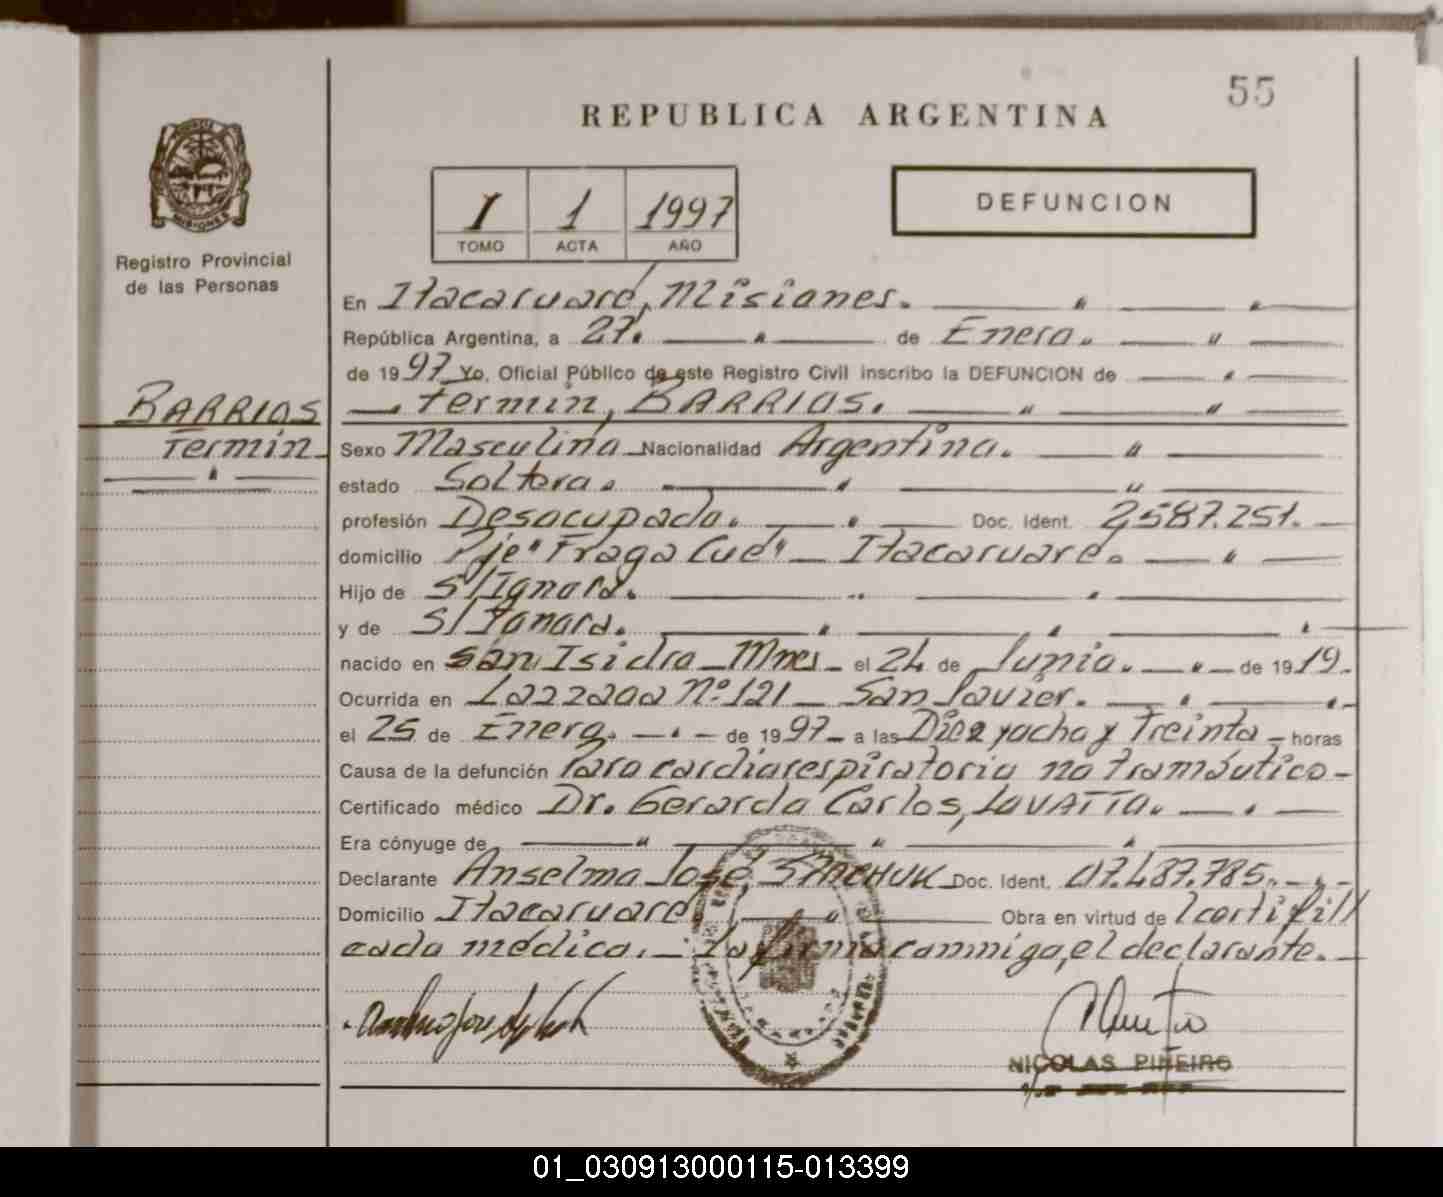 55
REPUBLICA ARGENTINA
I 1 1997
TOMO ACTA AÑO
DEFUNCION
MISIONES
Registro Provincial
de las Personas
En Itacaruaré, Misiones.
República Argentina, a 27. de Enero.
de 1997 Yo, Oficial Público de este Registro Civil inscribo la DEFUNCION de
Fermín, BARRIOS.
BARRIOS
Fermín
Sexo Masculino Nacionalidad Argentina.
estado Soltero.
profesión Desocupado. Doc. Ident. 2587.251.
domicilio Pje" Fraga Cué" Itacaruare.
Hijo de S/Ignora.
y de S/Ignora.
nacido en San Isidro Mnes el 24 de Junio. de 1919.
Ocurrida en Lozzada Nº 121 San Javier.
el 25 de Enero. de 1997 a las Diez y ocho y Treinta horas
Causa de la defunción Paro cardiorespiratorio no traumáutico
Certificado médico Dr. Gerardo Carlos, LOVATTO.
Era cónyuge de
Declarante Anselmo José, Doc. Ident. 07.487.785.
Domicilio Itacaruaré Obra en virtud de certifi//
cado médico. La firma conmigo, el declarante.
NICOLAS PIÑEIRO
01_030913000115-013399